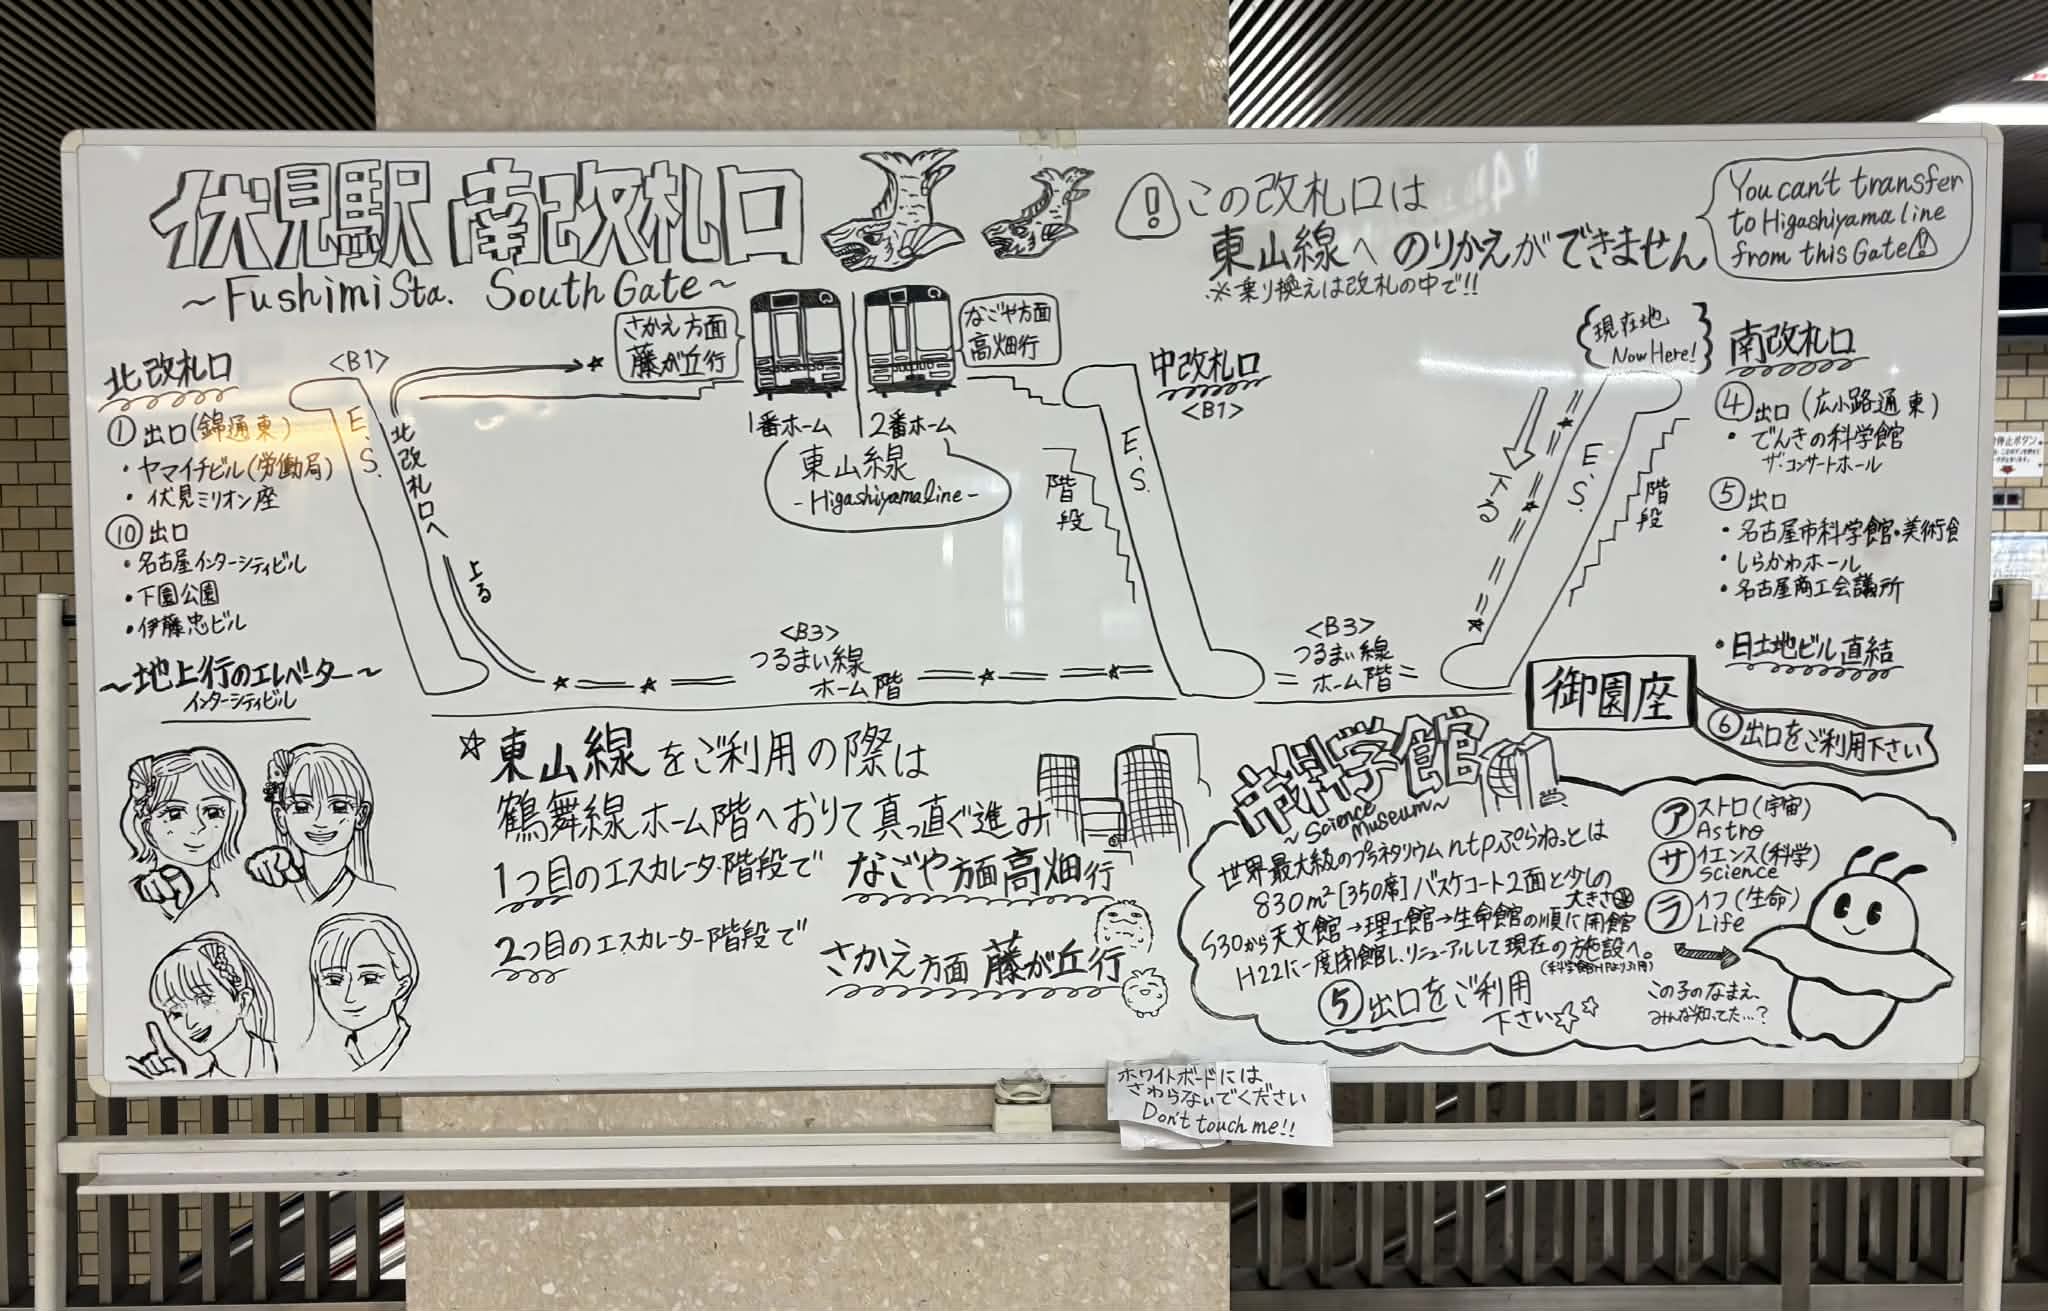 伏見駅 南改札口
~Fushimi Sta. South Gate~
この改札口は
東山線へ のりかえができません
※乗り換えは改札の中で!!
You can't transfer
to Higashiyama line
from this Gate
北改札口
① 出口(錦通東)
・ヤマイチビル(労働局)
・伏見ミリオン座
⑩ 出口
・名古屋インターシティビル
・下園公園
・伊藤忠ビル
~地上行のエレベーター~
インターシティビル
<B1>
E.S.
北改札口へ
上る
さかえ方面
藤が丘行
なごや方面
高畑行
1番ホーム
2番ホーム
東山線
-Higashiyama line-
中改札口
<B1>
階段
E.S.
<B3>
つるまい線
ホーム階
<B3>
つるまい線
ホーム階
現在地
Now Here!
下る
E.S.
階段
南改札口
④ 出口(広小路通東)
・でんきの科学館
ザ・コンサートホール
⑤ 出口
・名古屋市科学館・美術館
・しらかわホール
・名古屋商工会議所
・日土地ビル直結
御園座
⑥出口をご利用下さい
☆東山線をご利用の際は
鶴舞線ホーム階へおりて真っ直ぐ進み
1つ目のエスカレータ階段で なごや方面高畑行
2つ目のエスカレーター階段で さかえ方面 藤が丘行
市科学館
~Science Museum~
世界最大級のプラネタリウムntpぷらねっとは
830m²[350席]バスケコート2面と少しの
大きさ
S30から天文館→理工館→生命館の順に開館
H22に一度閉館し、リニューアルして現在の施設へ。
(科学館HPより引用)
⑤出口をご利用
下さい☆☆
アストロ(宇宙)
Astro
サイエンス(科学)
Science
ライフ(生命)
Life
この子のなまえ、
みんな知ってた…?
ホワイトボードには
さわらないでください
Don't touch me!!